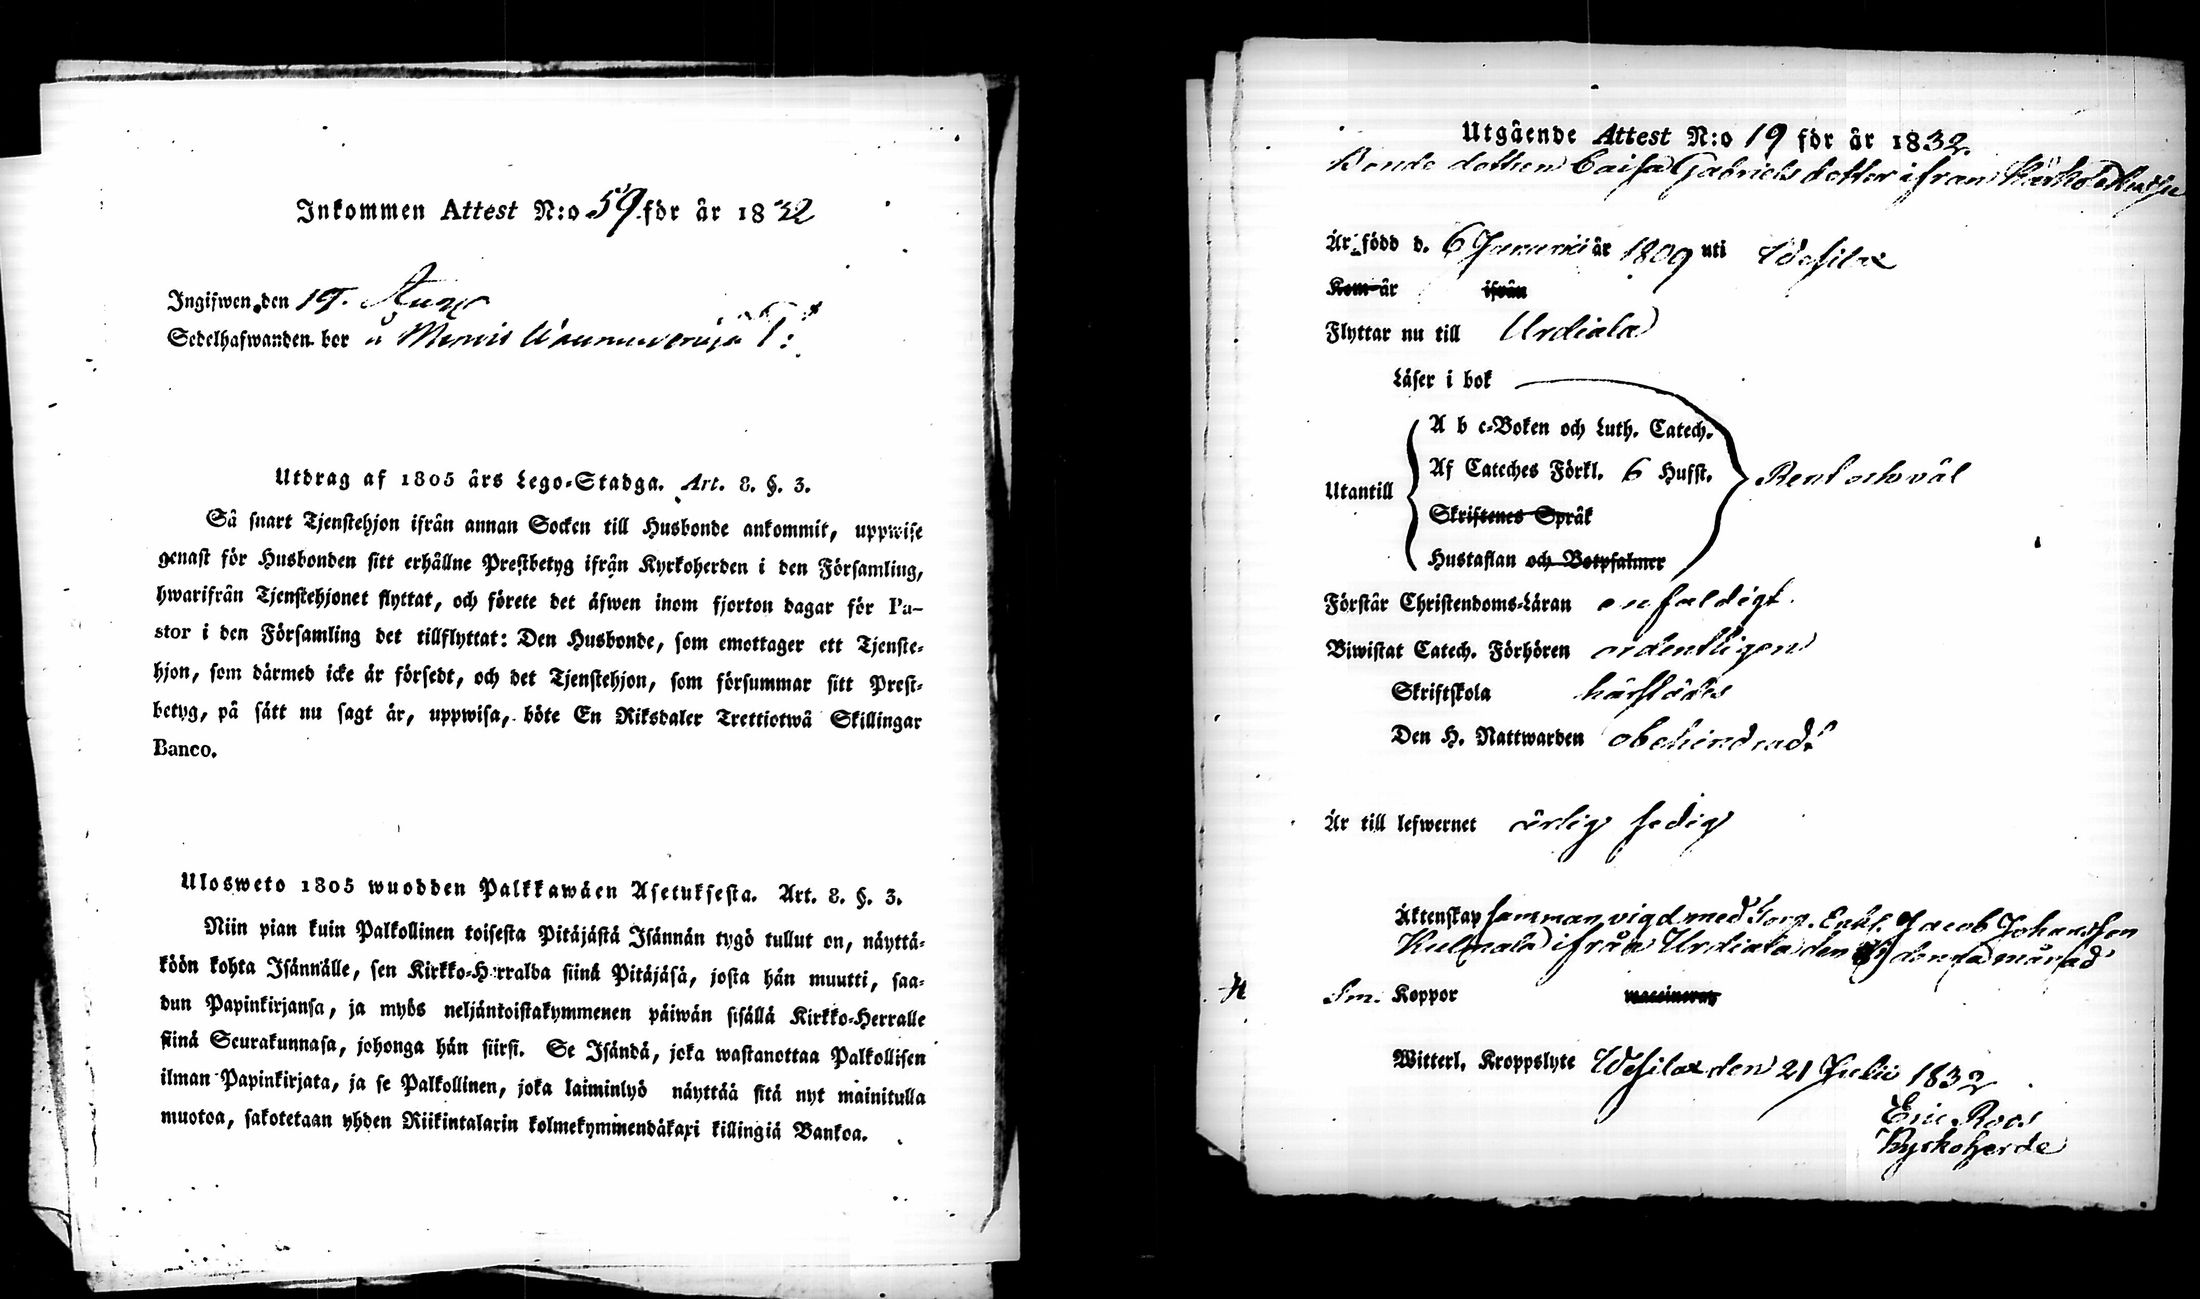 Inkommen Attest N:o 59 för år 1832
Ingifwen den 19. Aug.
Sedelhafwanden bor
Utdrag af 1805 års Lego-Stadga. Art. 8. §. 3.
Så snart Tjenstehjon ifrån annan Socken till Husbonde ankommit, uppwise
genast för Husbonden sitt erhållne Prestbetyg ifrån Kyrkoherden i den Församling,
hwarifrån Tjenstehjonet flyttat, och förete det äfwen inom fjorton dagar för Pa-
stor i den Församling det tillflyttat: Den Husbonde, som emottager ett Tjenste-
hjon, som därmed icke är försedt, och det Tjenstehjon, som försummar sitt Prest-
betyg, på sätt nu sagt är, uppwisa, böte En Riksdaler Trettiotwå Skillingar
Banco.
Ulosweto 1805 wuodden Palkkawäen Asetuksesta. Art. 8. §. 3.
Niin pian kuin Palkollinen toisesta Pitäjästä Isännän tygö tullut on, näyttä-
köön kohta Isännälle, sen Kirkko-Herralda siinä Pitäjäsä, josta hän muutti, saa-
dun Papinkirjansa, ja myös neljäntoistakymmenen päiwän sisällä Kirkko-Herralle
siinä Seurakunnasa, johonga hän siirsi. Se Isändä, joka wastanottaa Palkollisen
ilman Papinkirjata, ja se Palkollinen, joka laiminlyö näyttää sitä nyt mainitulla
muotoa, sakotetaan yhden Riikintalarin kolmekymmendäkaxi killingiä Bankoa.
Utgående Attest N:o 19 för år 1832.
Bonde dottren Caisa Gabriels dotter ifran
Är född d. 6 Januarii år 1809 uti Wesilax
Kom år ifrån
Flyttar nu till Urdiala
Läser i bok
A b c-Boken och Luth. Catech.
Af Cateches Förkl. 6 Hufst.
Rent och väl
Utantill
Skriftenes Språk
Hustaflan och Botpsalmer
Förstår Christendoms-Läran enfaldigt.
Biwistat Catech. Förhören ordentligen
Skriftskola härstädes
Den H. Nattwarden obehindrad
Är till lefwernet ärlig sedig
Äktenskap samman vigd med Torp. Enkl. Jacob Johansson
Kulmala ifrån Urdiala den denna månad
Sm. Koppor vaccinerats
Witterl. Kroppslyte Wesilax den 21 Julii 1832
Eric Roos
Kyrkoherde